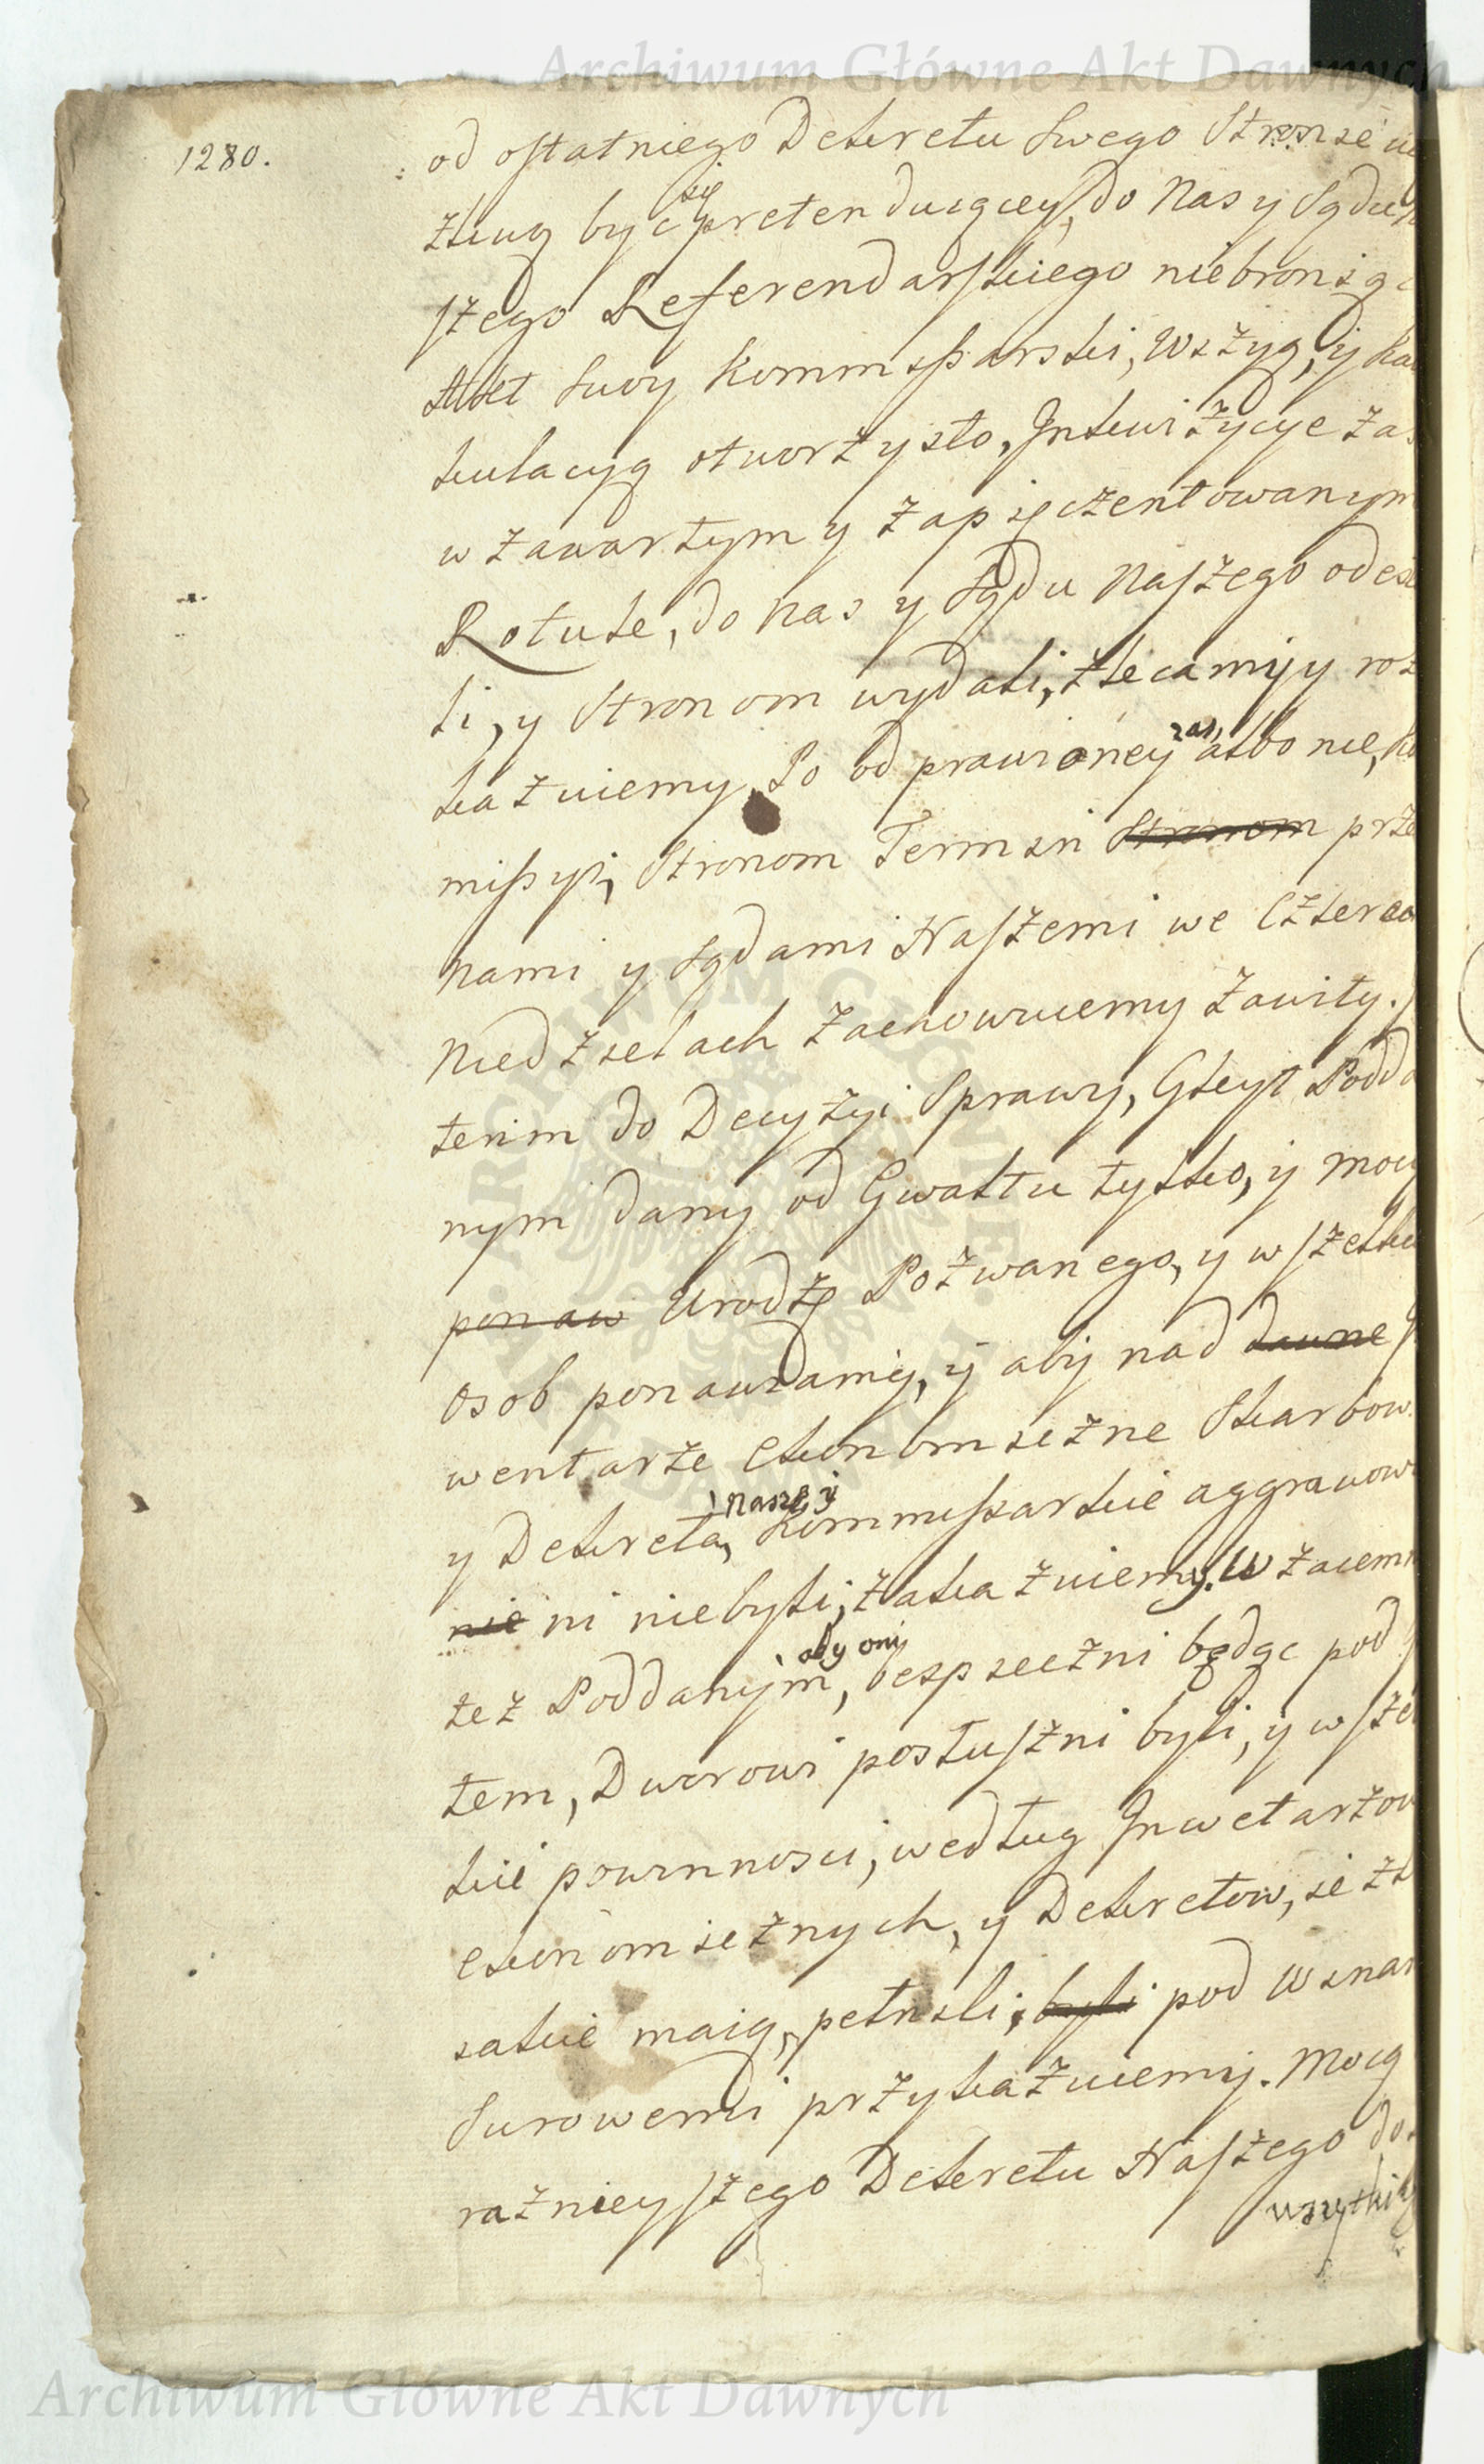 Archiwum Główne Akt Dawnych
1280.
od ostatniego Dekretu swego Stronie
zkuą być się pretenduiącey, do Nas y Sądu
szego Referendarskiego niebroniąc
Akt swoy Kommissarski, Wizyą, y Kal
kulacyą otworzysto, Inkwizycye zas
w zawartym y zapięczentowanym
Rotule, do Nas y Sądu Naszego odesła
li, y Stronom wydali, zlecamy y roz
kazuiemy. Po odprawioney zas, albo nie, Ko
missyi, Stronom Termin Stronom prze
Nami y Sądami Naszemi we Czterech
Niedzielach zachowuiemy zawity.
terim do Decyzyi Sprawy, Gleyt Podda
nym dany od Gwałtu tylko, y mocy
ponaw Urodzę Pozwanego, y wszelki
osob ponawiamy, y aby nad dawne
wentarze Ekonomiczne Skarbow
y Dekreta, Naszę y Kommissarskie aggrawow
nie ni niebyli, zakazuiemy. Wzaiem
też Poddanym, aby oni bespieczni będąc pod
tem, Dworowi posłuszni byli, y wsze
kie powinnosci, według Inwetarzow
Ekonomicznych, y Dekretow, ieżli
iakie maią, pełnili, byli pod Winam
surowemi przykazuiemy. Mocą
raznieyszego Dekretu Naszego do
wszytki
ARCHIWUM GŁÓWNE AKT DAWNYCH
Archiwum Główne Akt Dawnych